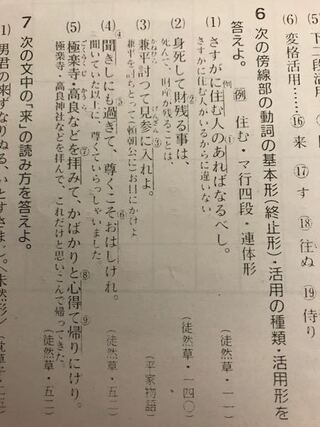 (5) 下二段活用
(6) 変格活用……⑯来 ⑰す ⑱往ぬ ⑲侍り
6 次の傍線部の動詞の基本形(終止形)・活用の種類・活用形を
答えよ。
例 住む・マ行四段・連体形
(1) さすがに住む人のあればなるべし。
例 ①
さすがに住む人がいるからに違いない
(徒然草・一一)
(2) 身死して財残る事は、
② ③
死んで、財産が残ることは
(徒然草・一四〇)
(3) 兼平討つて見参に入れよ。
かねひら げんざん
兼平を討ちとって(頼朝公に)お目にかけよ
(平家物語)
(4) 聞きしにも過ぎて、尊くこそおはしけれ。
④ ⑤ ⑥
聞いていた以上に、尊くていらっしゃいました。
(5) 極楽寺・高良などを拝みて、かばかりと心得て帰りにけり。
⑦ ⑧ ⑨
極楽寺・高良神社などを拝んで、これだけと思いこんで帰ってきた。
(徒然草・五二)
(徒然草・五二)
7 次の文中の「来」の読み方を答えよ。
(1) 男君の来ずなりぬる、